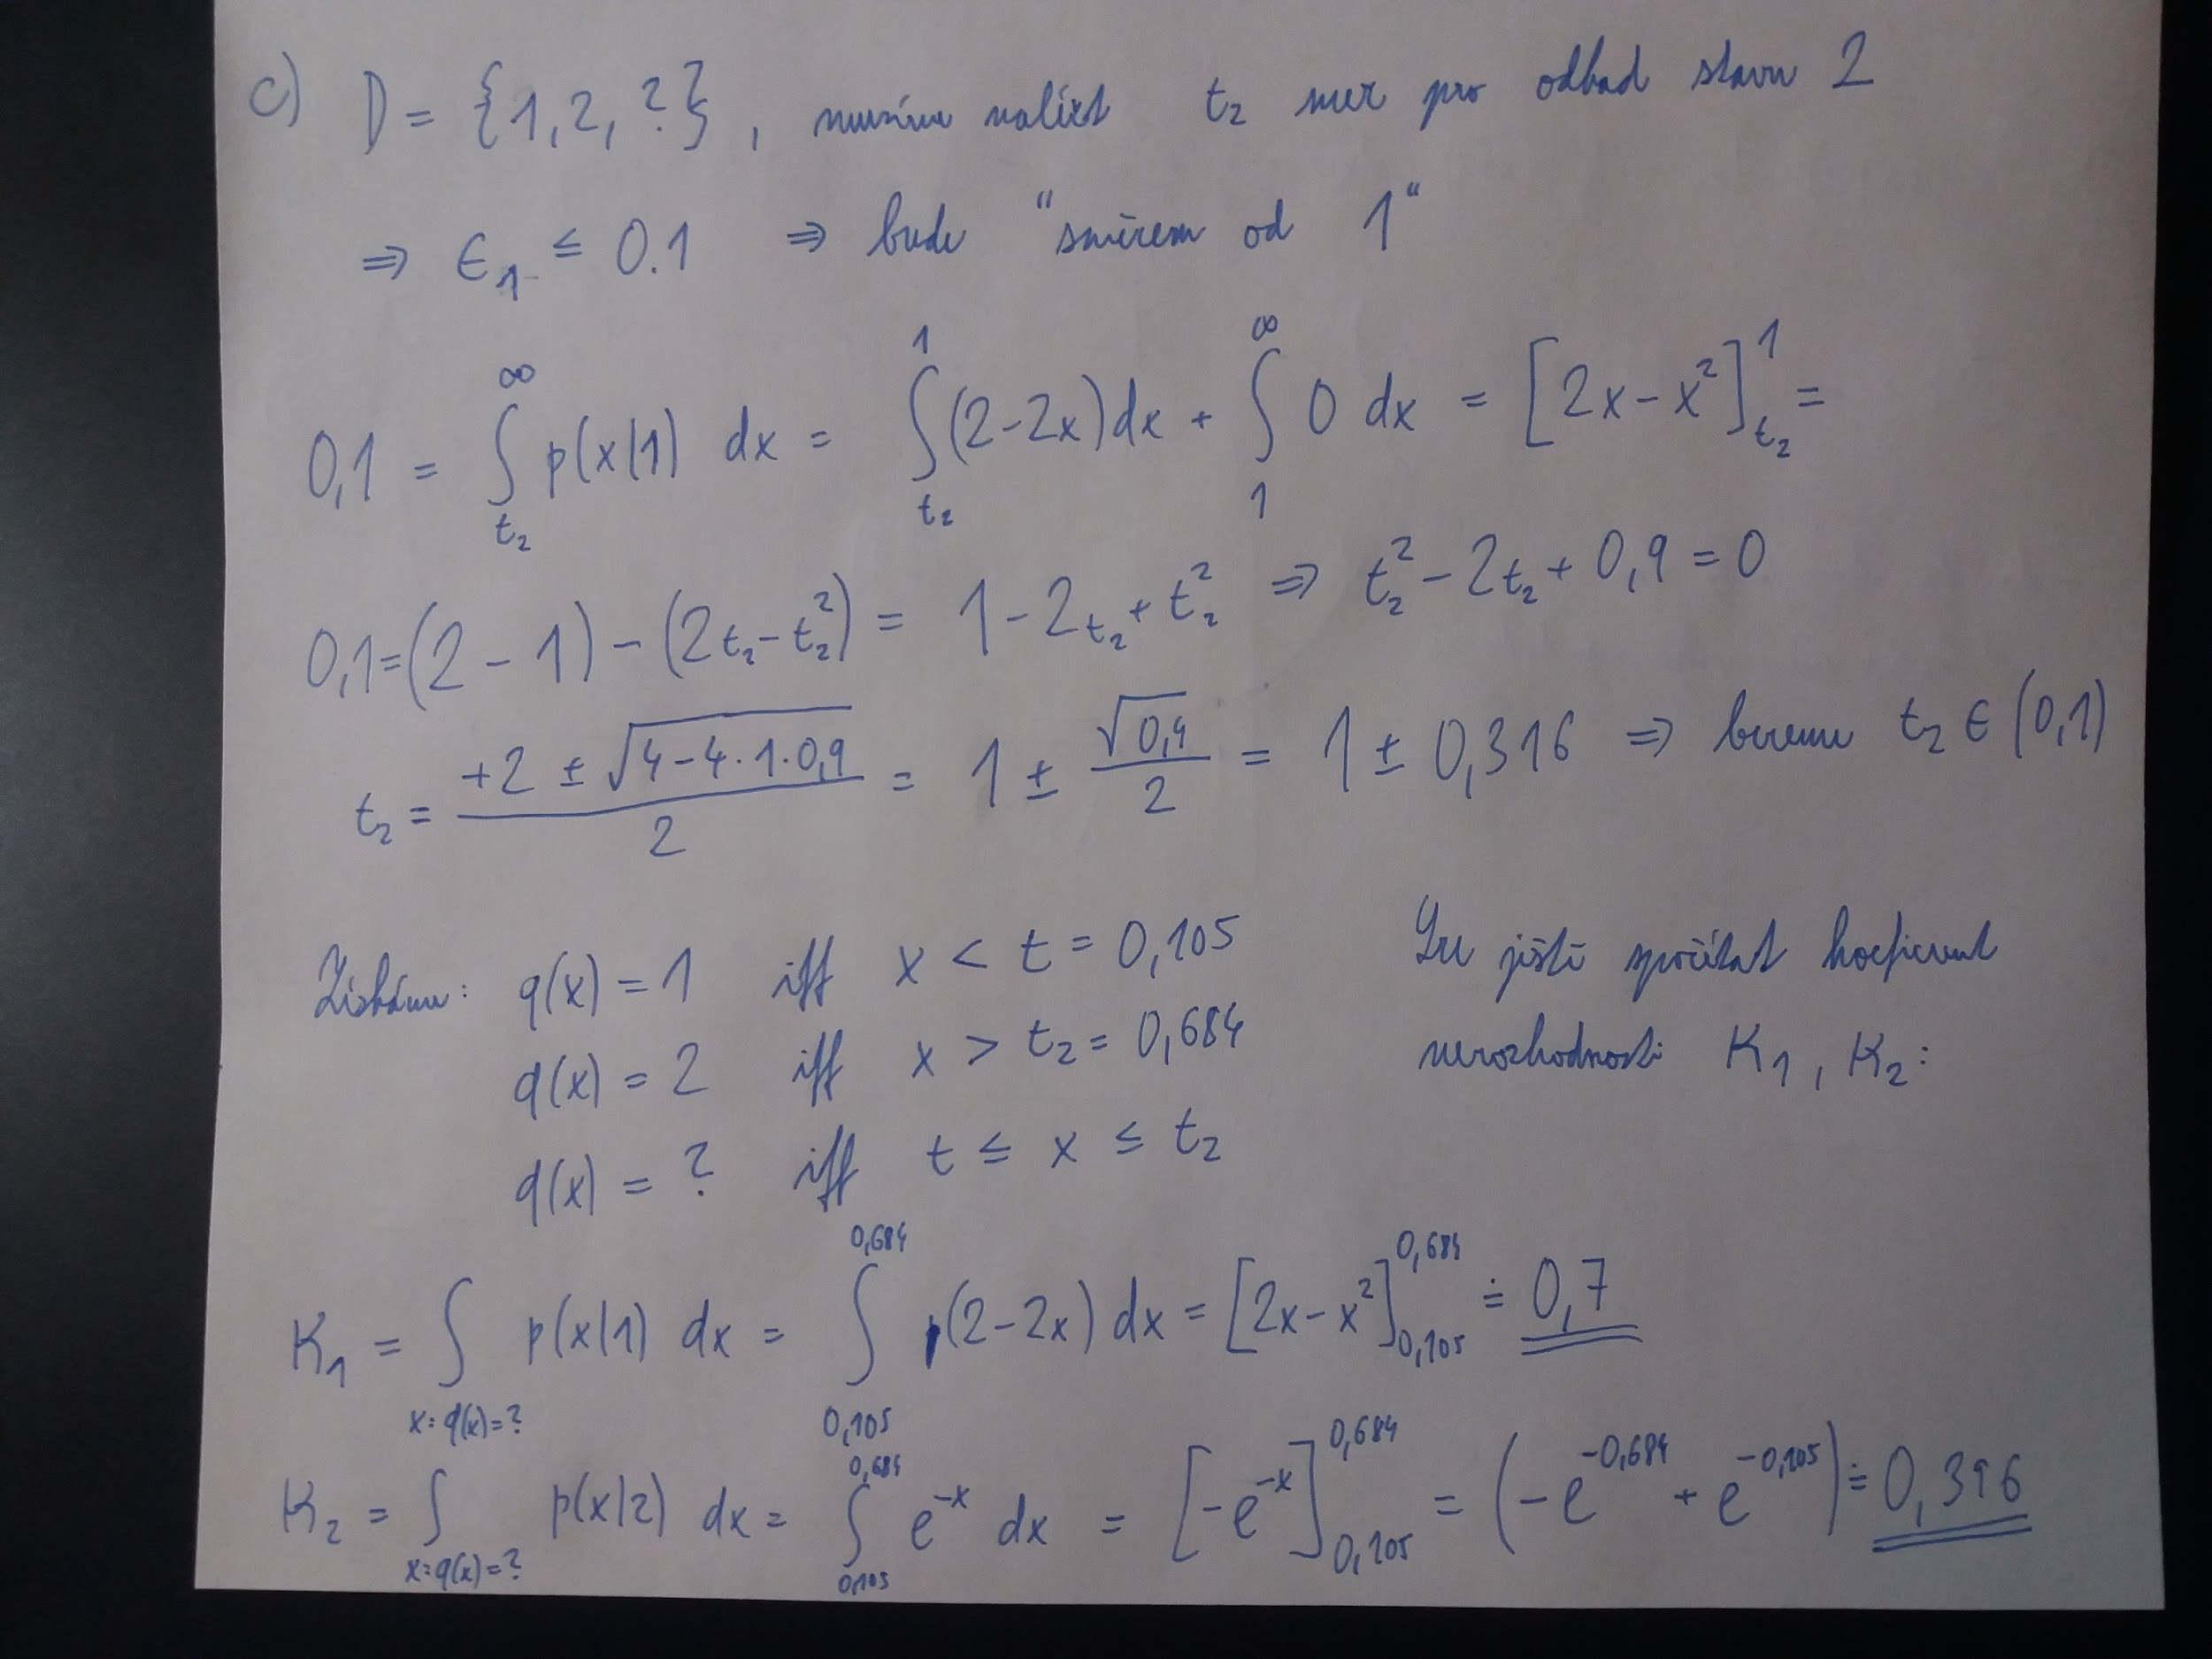 c) D = {1,2,?}, musíme nalézt t₂ mez pro odhad stavu 2
⇒ ϵ₁ ≤ 0.1 ⇒ bude "směrem od 1"
0,1 = ∫_{t₂}^{∞} p(x|1) dx = ∫_{t₂}^{1} (2-2x)dx + ∫_{1}^{∞} 0 dx = [2x-x²]_{t₂}^{1} =
0,1=(2-1)-(2t₂-t₂²) = 1-2t₂+t₂² ⇒ t₂²-2t₂+0,9=0
t₂ = \frac{+2 ± √(4-4·1·0,9)}{2} = 1 ± \frac{√0,4}{2} = 1 ± 0,316 ⇒ bereme t₂ ϵ (0,1)
Získáme: q(x) = 1 iff x < t = 0,105
q(x) = 2 iff x > t₂ = 0,684
q(x) = ? iff t ≤ x ≤ t₂
Lze ještě spočítat koeficient
nerozhodnosti K₁, K₂:
K₁ = ∫_{x: q(x)=?} p(x|1) dx = ∫_{0,105}^{0,684} (2-2x) dx = [2x-x²]_{0,105}^{0,684} ≐ 0,7
K₂ = ∫_{x: q(x)=?} p(x|2) dx = ∫_{0,105}^{0,684} e^{-x} dx = [-e^{-x}]_{0,105}^{0,684} = (-e^{-0,684} + e^{-0,105}) ≐ 0,396